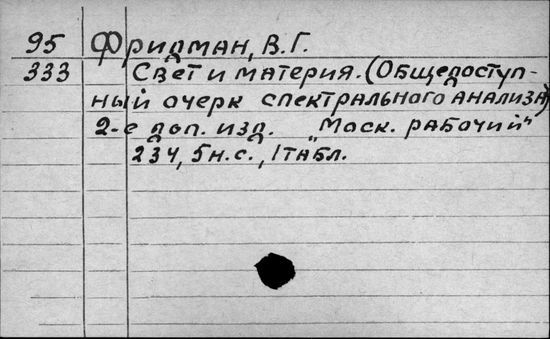 95 Фридман, В.Г.
333 Свет и материя. (Общедоступ-
ный очерк спектрального анализа)
2-е доп. изд. „Моск. рабочий"
234, 5н.с., 1 табл.